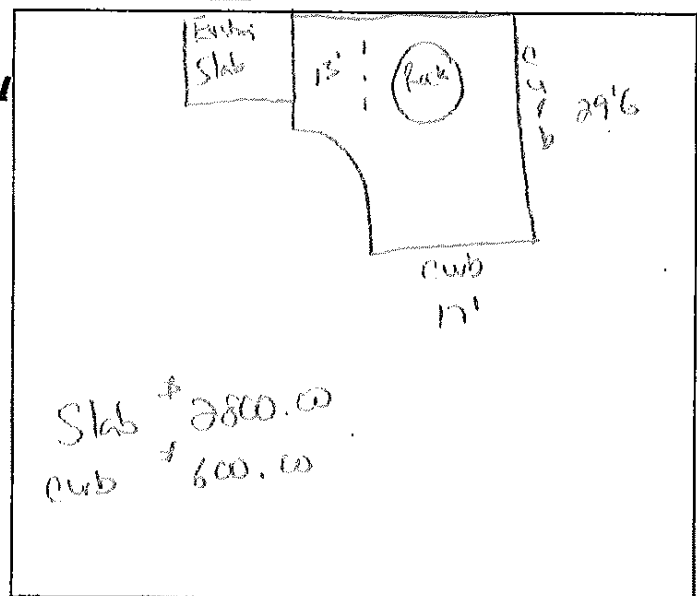 Existing
Slab
13'
Rock
curb
29'6
curb
17'
Slab $2800.00
curb $600.00